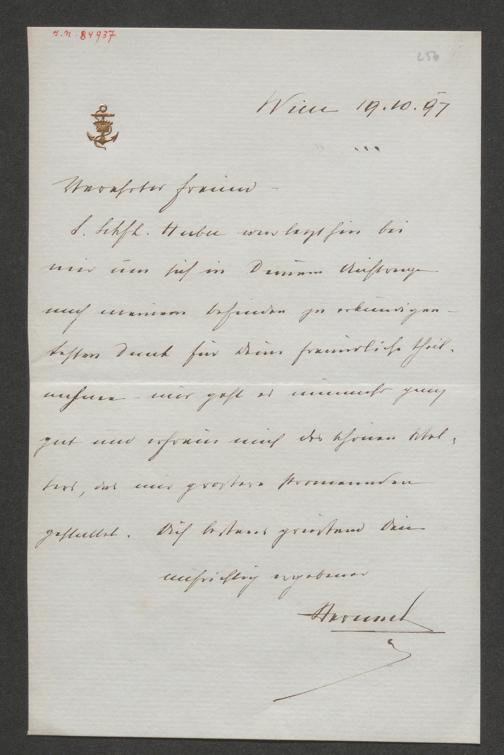 I.N. 84937
Wien 19.10.97
Verehrter Freund –
L. Schfh. Huber war letzthin bei
mir um sich in Deinem Auftrage
nach meinem Befinden zu erkundigen –
besten Dank für Deine freundliche Theil-
nahme – mir geht es nunmehr ganz
gut und erfreue mich des schönen Wet-
ters, das mir grössere Promenaden
gestattet. Dich bestens grüssend Dein
aufrichtig ergebener